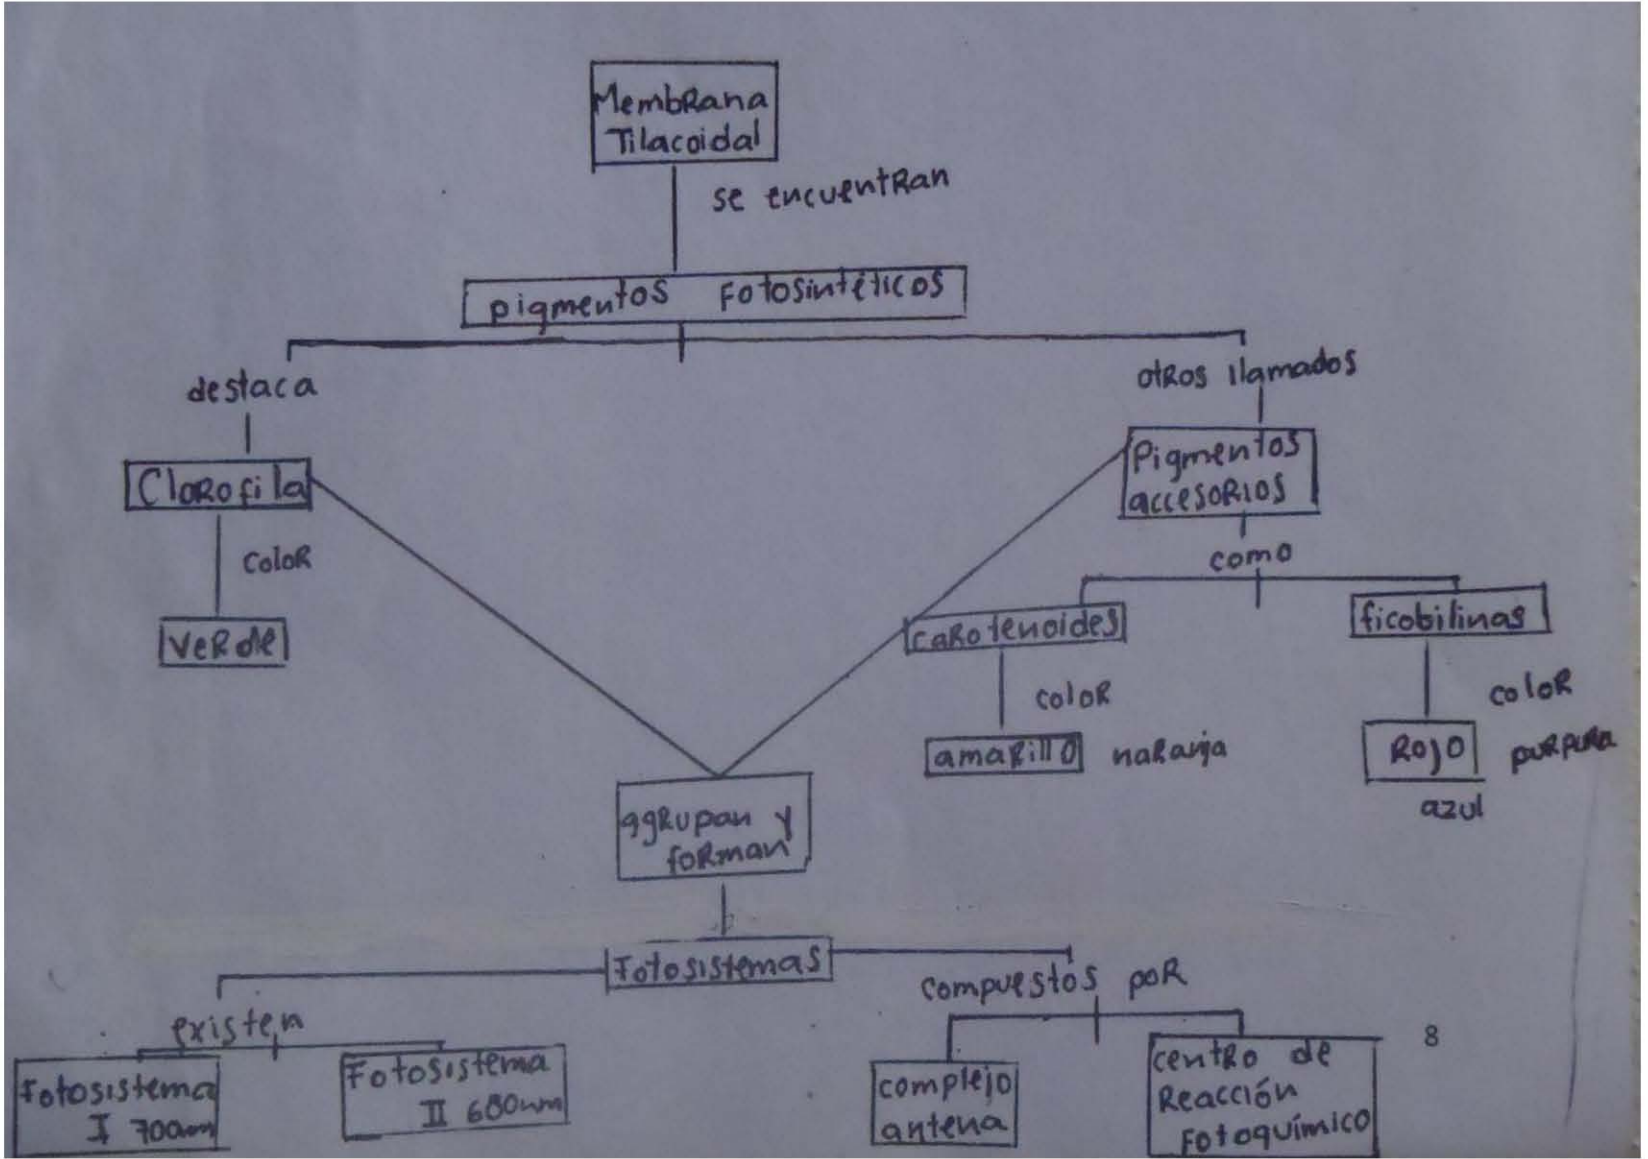 Membrana
Tilacoidal
se encuentran
pigmentos fotosintéticos
destaca
otros llamados
Clorofila
Pigmentos
accesorios
color
como
verde
carotenoides
ficobilinas
color
color
amarillo naranja
Rojo purpura
azul
agrupan y
forman
Fotosistemas
compuestos por
existen
8
Fotosistema
I 700nm
Fotosistema
II 680nm
complejo
antena
centro de
Reacción
Fotoquímico